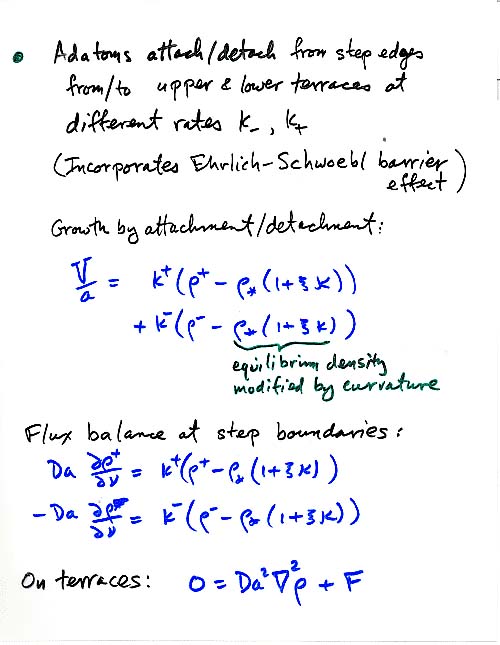 • Adatoms attach/detach from step edges
from/to upper & lower terraces at
different rates k₋, k₊
(Incorporates Ehrlich-Schwoebl barrier
effect)
Growth by attachment/detachment:
V/a = k⁺(ρ⁺ - ρ*(1+ξκ))
+ k⁻(ρ⁻ - ρ*(1+ξκ))
equilibrium density
modified by curvature
Flux balance at step boundaries:
Da ∂ρ⁺/∂ν = k⁺(ρ⁺ - ρ*(1+ξκ))
-Da ∂ρ⁻/∂ν = k⁻(ρ⁻ - ρ*(1+ξκ))
On terraces: 0 = Da²∇²ρ + F